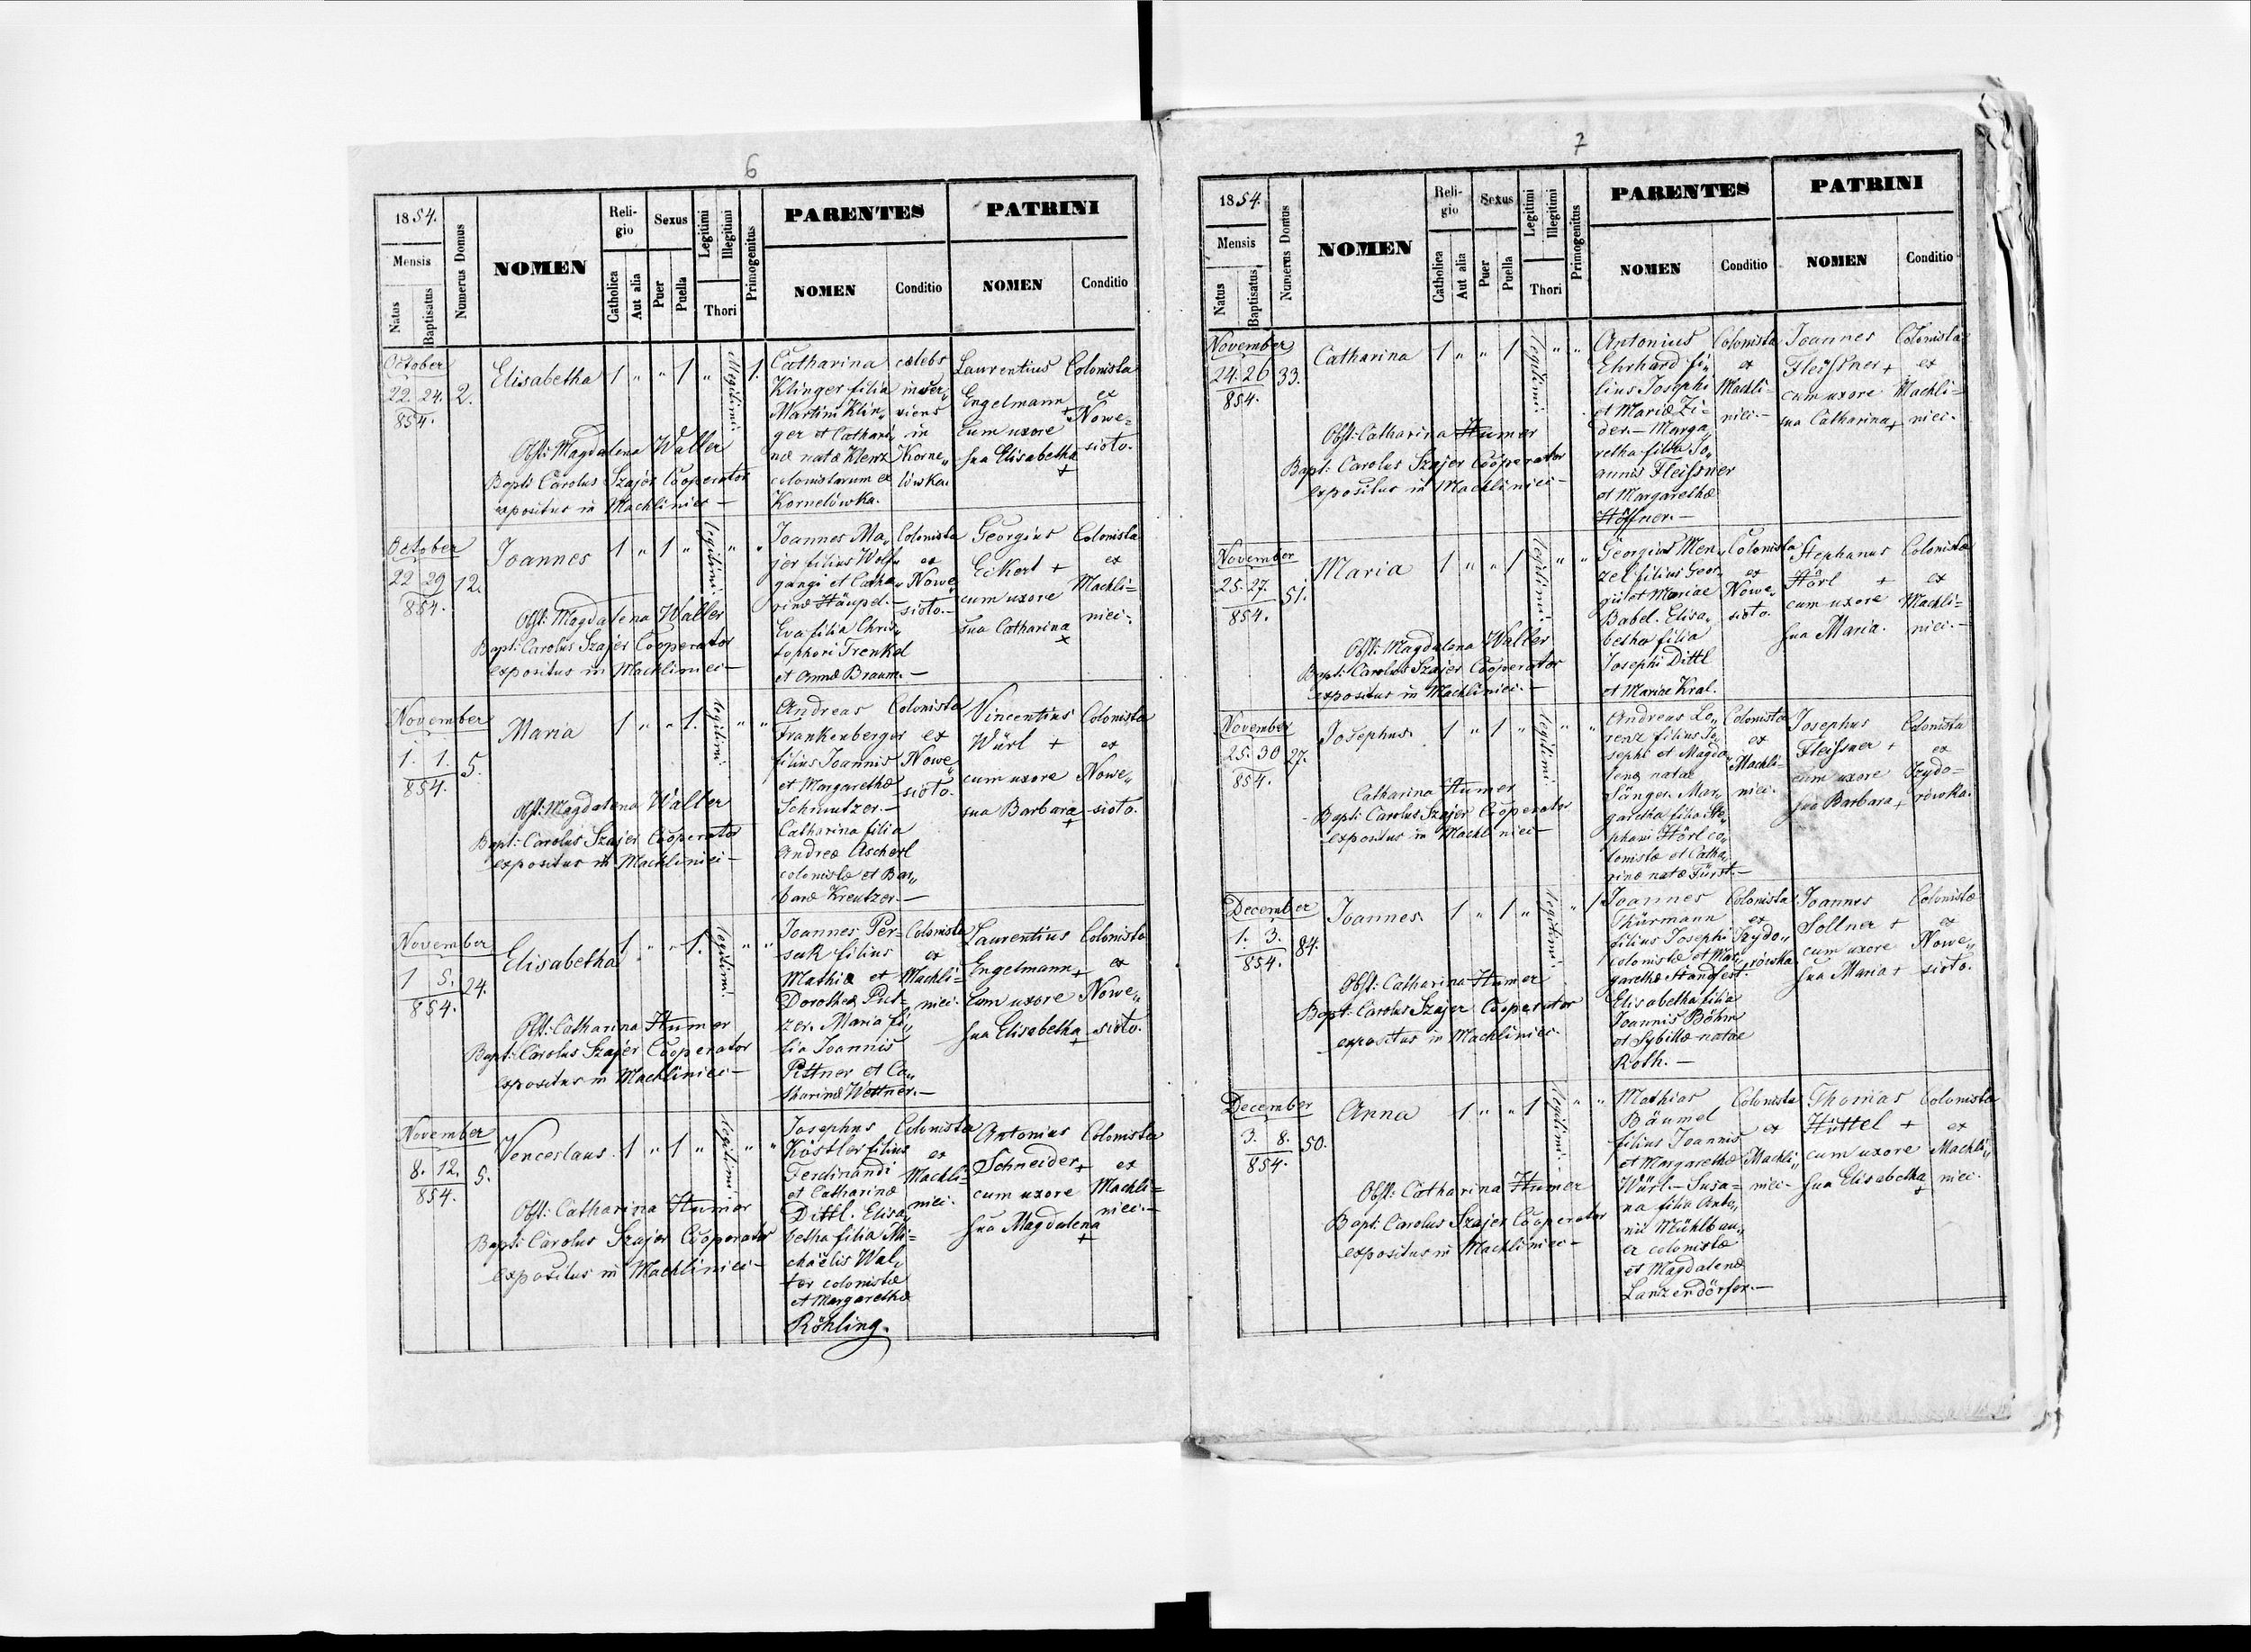 6
1854.
Mensis
Natus
Baptisatus
Numerus Domus
NOMEN
Religio
Catholica
Aut alia
Sexus
Puer
Puella
Legitimi
Illegitimi
Thori
Primogenitus
PARENTES
NOMEN
Conditio
PATRINI
NOMEN
Conditio
October
22. 24.
854.
2.
Elisabetha
1 " " 1 "
illegitimi
1.
Obst: Magdalena Waller
Bapt: Carolus Szajer Cooperator
expositus in Machliniec —
Catharina
Klinger filia
Martini Klin„
ger et Cathari„
næ natæ Klenz
colonistarum ex
Kornelówka.
cælebs
inser„
viens
in
Korne„
lówka
Laurentius
Engelmann +
cum uxore
sua Elisabetha
+
Colonista
ex
Nowe=
sioło.
October
22 29
854.
12.
Joannes
1 " 1 "
legitimi
" "
Obst: Magdalena Waller
Bapt: Carolus Szajer Cooperator
expositus in Machliniec —
Joannes Ma„
jer filius Wolf„
gangi et Catha„
rinæ Häupel. —
Eva filia Chris„
tophori Trenkel
et Annæ Braun. —
Colonista
ex
Nowe„
sioło. —
Georgius
Eckert +
cum uxore
sua Catharina
x
Colonista
ex
Machli=
niec.
November
1. 1.
854.
5.
Maria
1 " " 1.
legitimi
" "
Obst: Magdalena Waller
Bapt: Carolus Szajer Cooperator
expositus in Machliniec —
Andreas
Frankenberger
filius Joannis
et Margarethæ
Schmutzer. —
Catharina filia
Andreæ Ascherl
colonistæ et Bar„
baræ Kreutzer. —
Colonista
ex
Nowe„
sioło.
Vincentius
Würl +
cum uxore
sua Barbara
+
Colonista
ex
Nowe„
sioło.
November
1 5.
854.
24.
Elisabetha
1 " " 1.
legitimi
" "
Obst: Catharina Humer
Bapt: Carolus Szajer Cooperator
expositus in Machliniec —
Joannes Per=
sak filius
Mathiæ et
Dorotheæ Put=
zer. Maria fi„
lia Joannis
Pittner et Ca„
tharinæ Wettner. —
Colonista
ex
Machli=
niec.
Laurentius
Engelmann +
cum uxore
sua Elisabetha
+
Colonista
ex
Nowe„
sioło.
November
8. 12.
854.
5.
Venceslaus
1 " 1 "
legitimi
" "
Obst: Catharina Humer
Bapt: Carolus Szajer Cooperator
expositus in Machliniec —
Josephus
Köstler filius
Ferdinandi
et Catharinæ
Dittl. Elisa„
betha filia Mi=
chaëlis Wal„
ter colonistæ
et Margarethæ
Röhling.
Colonista
ex
Machli=
niec.
Antonius
Schneider +
cum uxore
sua Magdalena
+
Colonista
ex
Machli=
niec. —
7
1854.
Mensis
Natus
Baptisatus
Numerus Domus
NOMEN
Religio
Catholica
Aut alia
Sexus
Puer
Puella
Legitimi
Illegitimi
Thori
Primogenitus
PARENTES
NOMEN
Conditio
PATRINI
NOMEN
Conditio
November
24. 26
854.
33.
Catharina
1 " " 1
legitimi
" "
Obst: Catharina Humer
Bapt: Carolus Szajer Cooperator
expositus in Machliniec —
Antonius
Ehrhard fi„
lius Josephi
et Mariæ Zi=
der. — Marga„
retha filia Jo„
annis Fleissner
et Margarethæ
Höffner. —
Colonista
ex
Machli=
niec. —
Joannes
Fleissner +
cum uxore
sua Catharina +
Colonista
ex
Machli=
niec.
November
25. 27.
854.
51.
Maria
1 " " 1
legitimi
" "
Obst: Magdalena Waller
Bapt: Carolus Szajer Cooperator
expositus in Machliniec. —
Georgius Men„
zel filius Geor„
gii et Mariae
Babel. Elisa„
betha filia
Josephi Dittl
et Mariæ Kral.
Colonista
ex
Nowe„
sioło.
Stephanus
Hörl +
cum uxore
sua Maria.
Colonista
ex
Machli=
niec. —
November
25. 30
854.
27.
Josephus.
1 " 1 "
legitimi
" "
Catharina Humer
Bapt: Carolus Szajer Cooperator
expositus in Machliniec —
Andreas Lo„
renz filius Jo„
sephi et Magda„
lenæ natae
Sänger. Mar„
garetha filia Ste„
phani Hörl co„
lonistæ et Catha„
rinæ natæ Fürst. —
Colonista
ex
Machli=
niec.
Josephus
Fleissner +
cum uxore
sua Barbara +
Colonista
ex
Izydo=
rówka.
December
1. 3.
854.
84.
Joannes
1 " 1 "
legitimi
" 1
Obst: Catharina Humer
Bapt: Carolus Szajer Cooperator
expositus in Machliniec.
Joannes
Thürmann
filius Josephi
colonistæ et Mar„
garethæ Handfest.
Elisabetha filia
Joannis Böhm
et Sybillæ natae
Roth. —
Colonista
ex
Izydo„
rówka.
Joannes
Sollner +
cum uxore
sua Maria +
Colonistæ
ex
Nowe„
sioło.
December
3. 8.
854.
50.
Anna
1 " " 1
legitimi
" "
Obst: Catharina Humer
Bapt: Carolus Szajer Cooperator
expositus in Machliniec —
Mathias
Bäumel
filius Joannis
et Margarethæ
Würl. — Susa=
na filia Anto„
nii Mühlbau„
er colonistæ
et Magdalenæ
Lanzendörfer. —
Colonista
ex
Machli„
niec —
Thomas
Hüttel +
cum uxore
sua Elisabetha
+
Colonista
ex
Machli„
niec.